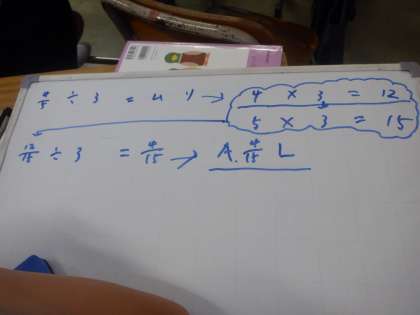 4/5 ÷ 3 =
4 × 3 = 12
5 × 3 = 15
12/15 ÷ 3 = 4/15 → A. 4/15 L